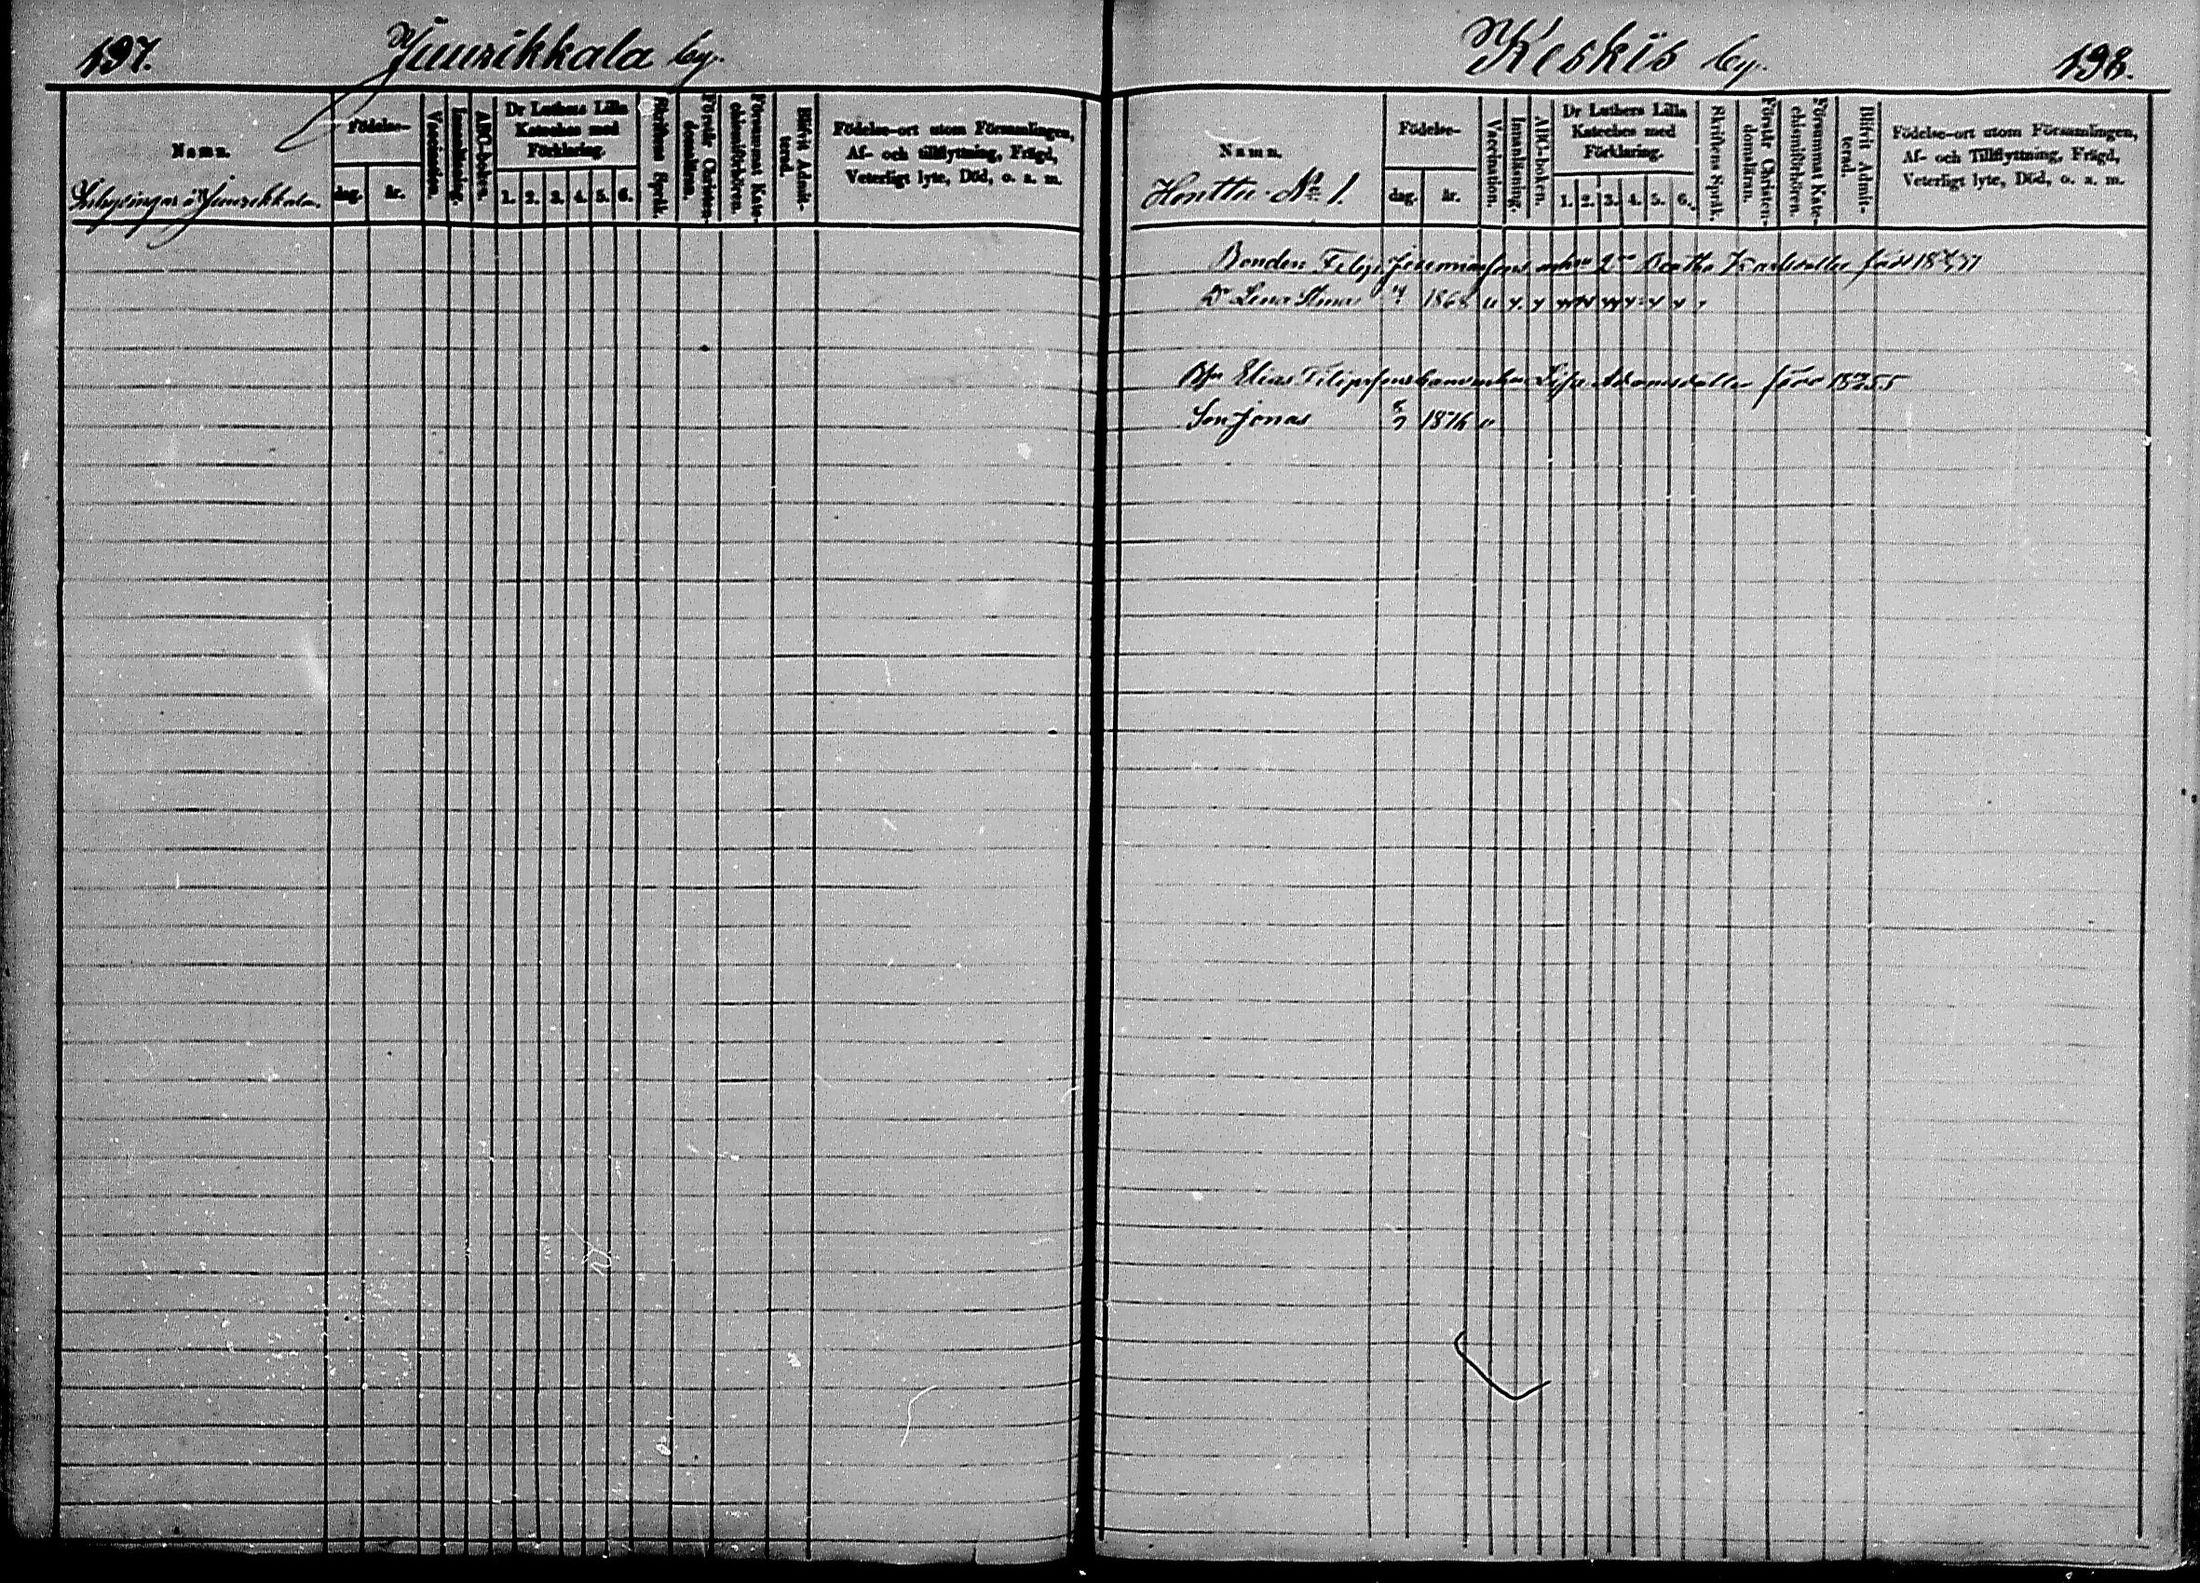 197.
Juurikkala by.
Namn.
Födelse-
dag.
år.
Vaccination.
Innanläsning.
ABC-boken.
Dr Luthers Lilla
Kateches med
Förklaring.
1. 2. 3. 4. 5. 6.
Skriftens Språk.
Förstår Christen-
domsläran.
Försummat Kate-
chismiförhören.
Blifvit Admit-
terad.
Födelse-ort utom Församlingen,
Af- och tillflyttning, Frägd,
Veterligt lyte, Död, o. s. m.
Juurikkala.
Keskis by.
198.
Namn.
Honttu No 1.
Födelse-
dag.
år.
Vaccination.
Innanläsning.
ABC-boken.
Dr Luthers Lilla
Kateches med
Förklaring.
1. 2. 3. 4. 5. 6.
Skriftens Språk.
Förstår Christen-
domsläran.
Försummat Kate-
chismiförhören.
Blifvit Admit-
terad.
Födelse-ort utom Församlingen,
Af- och Tillflyttning, Frägd,
Veterligt lyte, Död, o. s. m.
Bonden Filip
Dr Lena Stina 1868
Elias Filipssons Lisa Adamsdotter
Son Jonas 1876